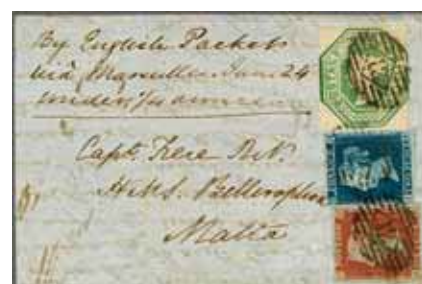 By English Packet
via Marseilles Jan 24
under
Capt. Frere R.N.
H.M.S. Bellerophon
Malta